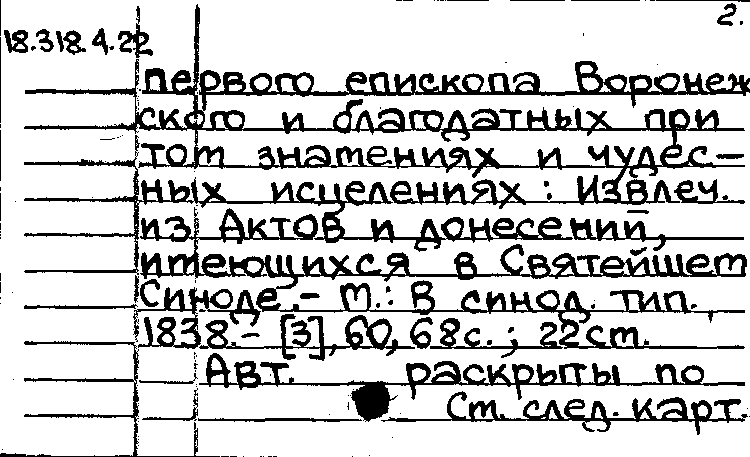 2.
18.318.4.22
первого епископа Воронеж
ского и благодатных при
том знамениях и чудес-
ных исцелениях : Извлеч.
из Актов и донесений,
имеющихся в Святейшем
Синоде.- М.: В синод. тип.,
1838.- [3], 60, 68с. ; 22см.
Авт. раскрыты по
См. след. карт.